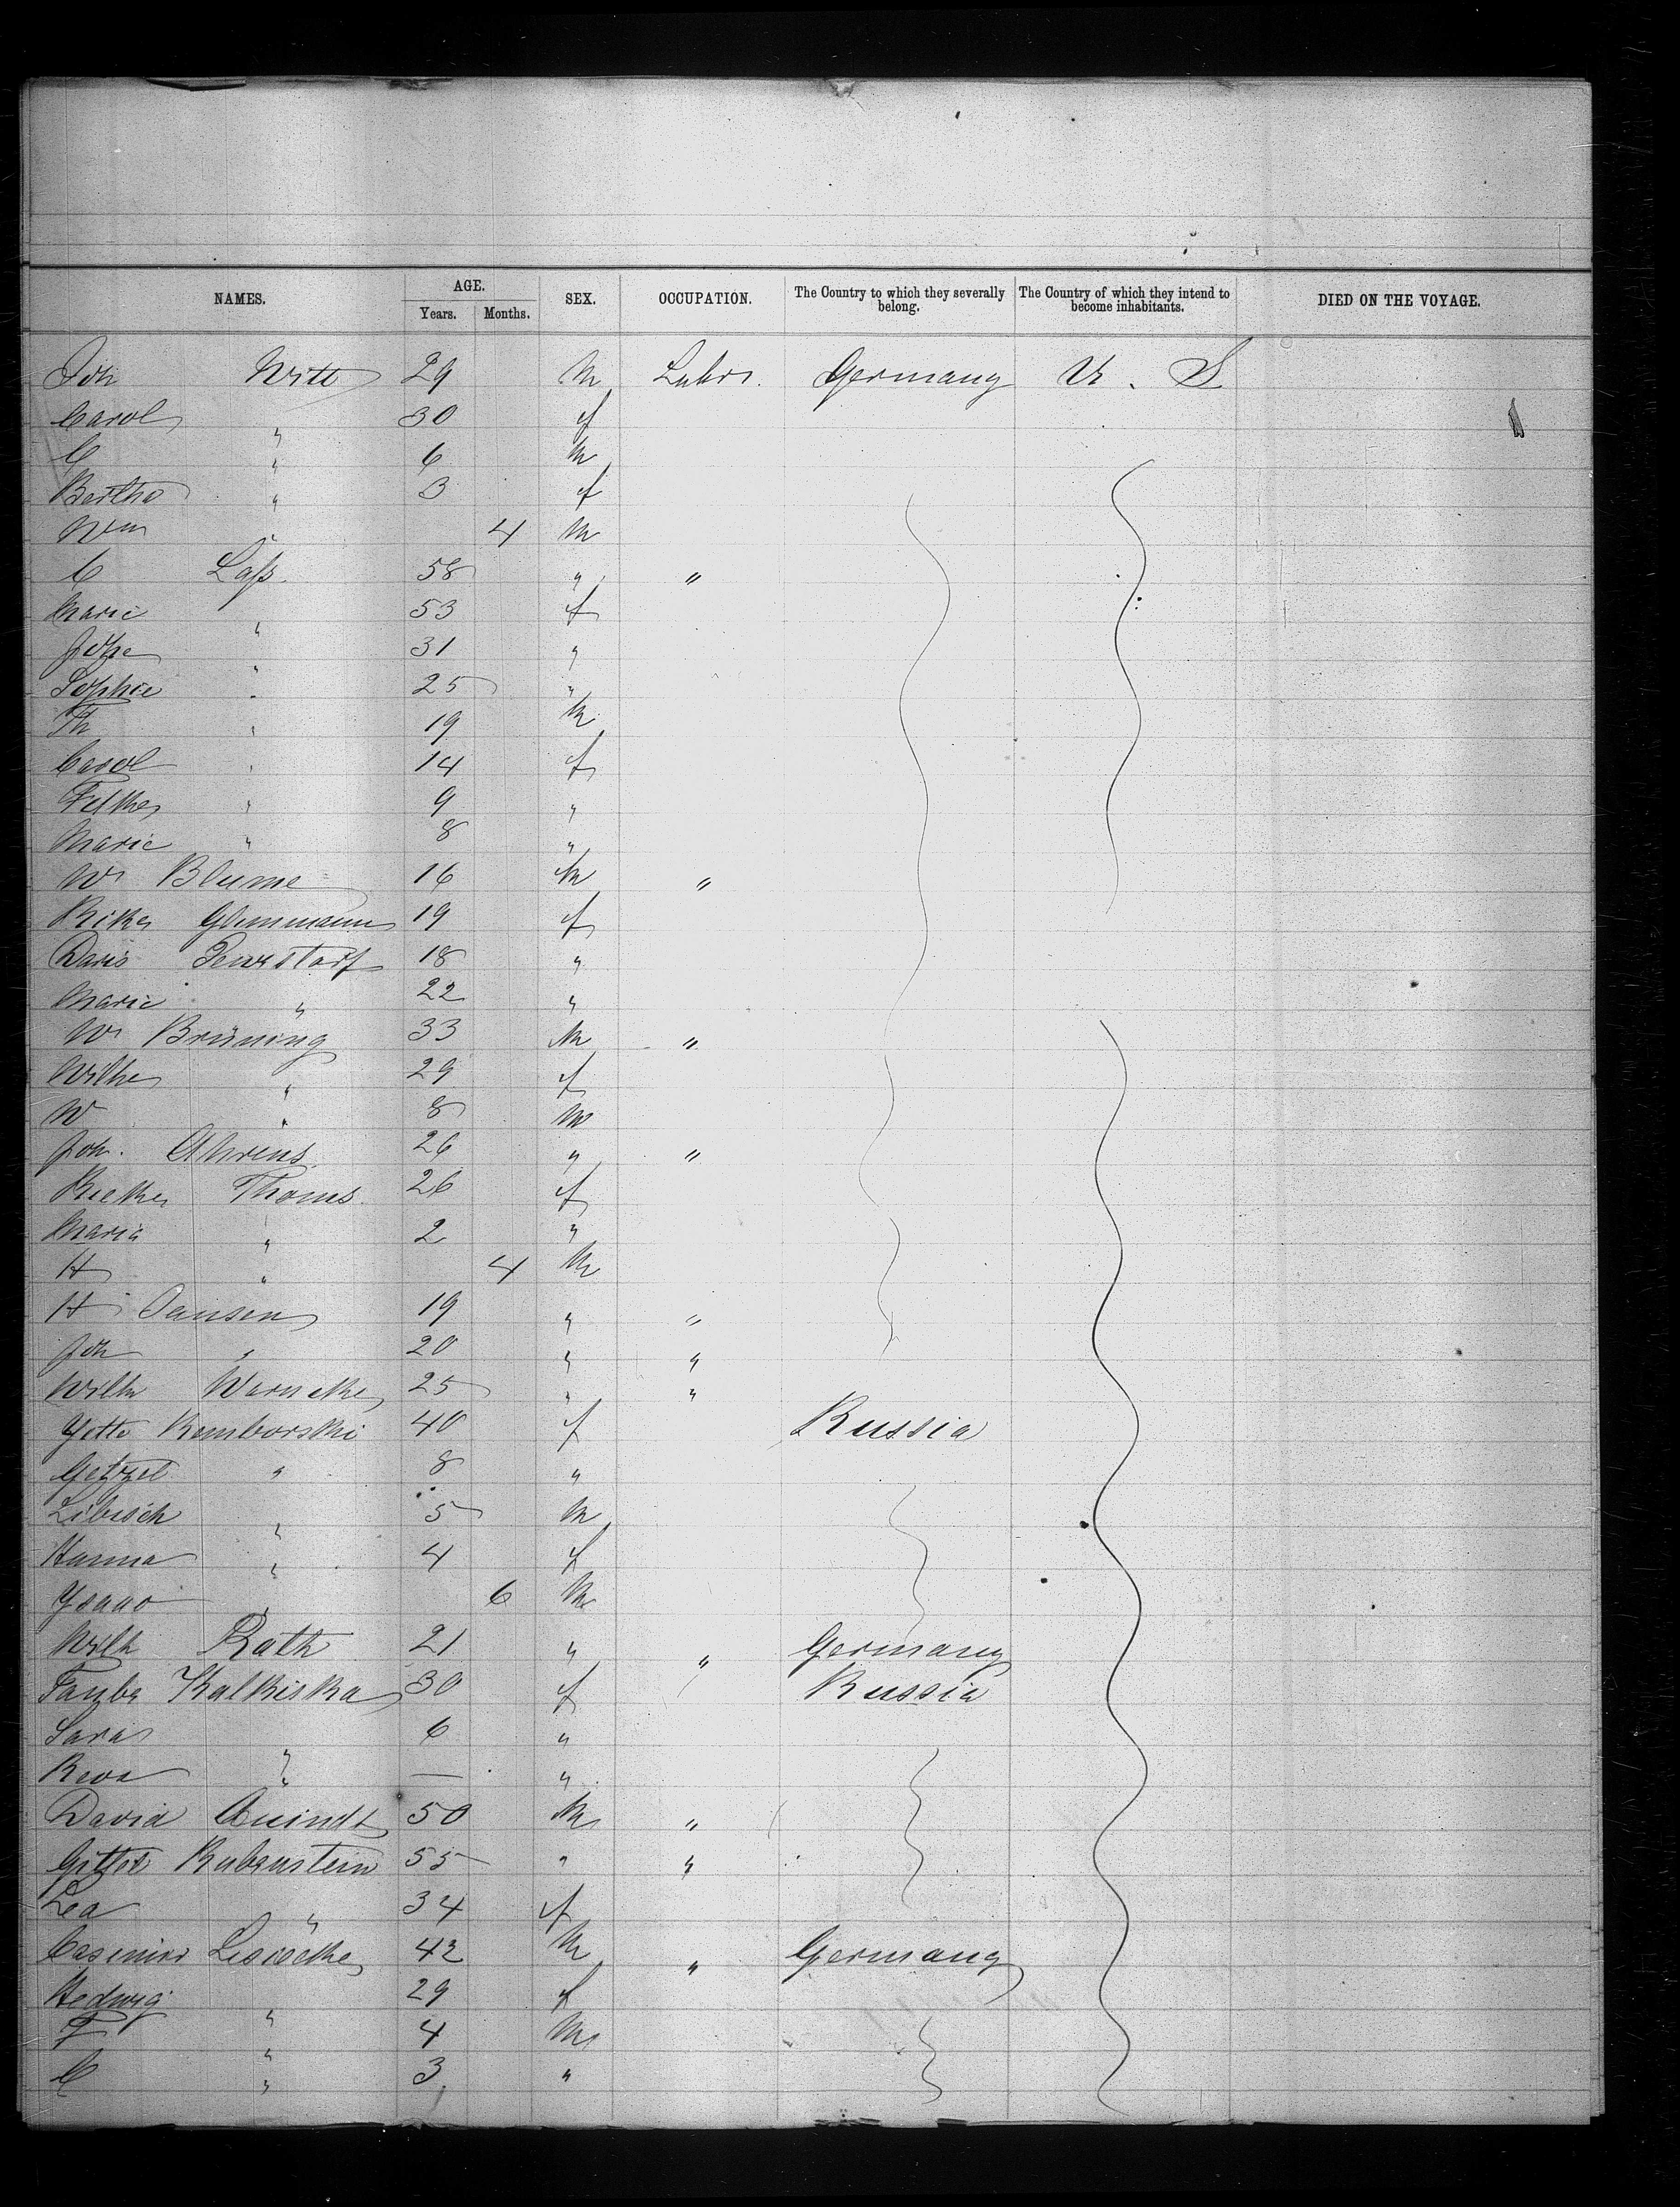 NAMES. AGE. SEX. OCCUPATION. The Country to which they severally belong. The Country of which they intend to become inhabitants. DIED ON THE VOYAGE.
Years. Months.
Joh Witt 29 m Labor. Germany U. S
Carol " 30 f
C " 6 m
Bertha " 3 f
Wm " 4 m
C Laſs. 58 " "
Marie " 53 f
Johe " 31 "
Sophie " 25 "
Th " 19 m
Carol " 14 f
" 9 "
Marie " 8 "
W Blume 16 m "
Rike 19 f
Doris 18 "
Marie " 22 "
W Brüning 33 m "
Wilhe " 29 f
W " 8 m
Joh. Ahrens 26 " "
Rieke Thoms 26 f
Maria " 2 "
H " 4 m
H Jansen 19 " "
Joh " 20 " "
Wilh Warneke 25 " "
Yette Remborski 40 f Russia
Getzel " 8 "
Libisch " 5 m
Hanna " 4 f
Ysaac " 6 m
Wilh Rath 21 " " Germany
Taube Kalkiska 30 f Russia
Sara " 6 "
Rewa " — "
David 50 m "
Gittel Rubenstein 55 " "
Lea " 34 f
Casimir 42 m " Germany
Hedwig " 29 f
F " 4 m
C " 3 "